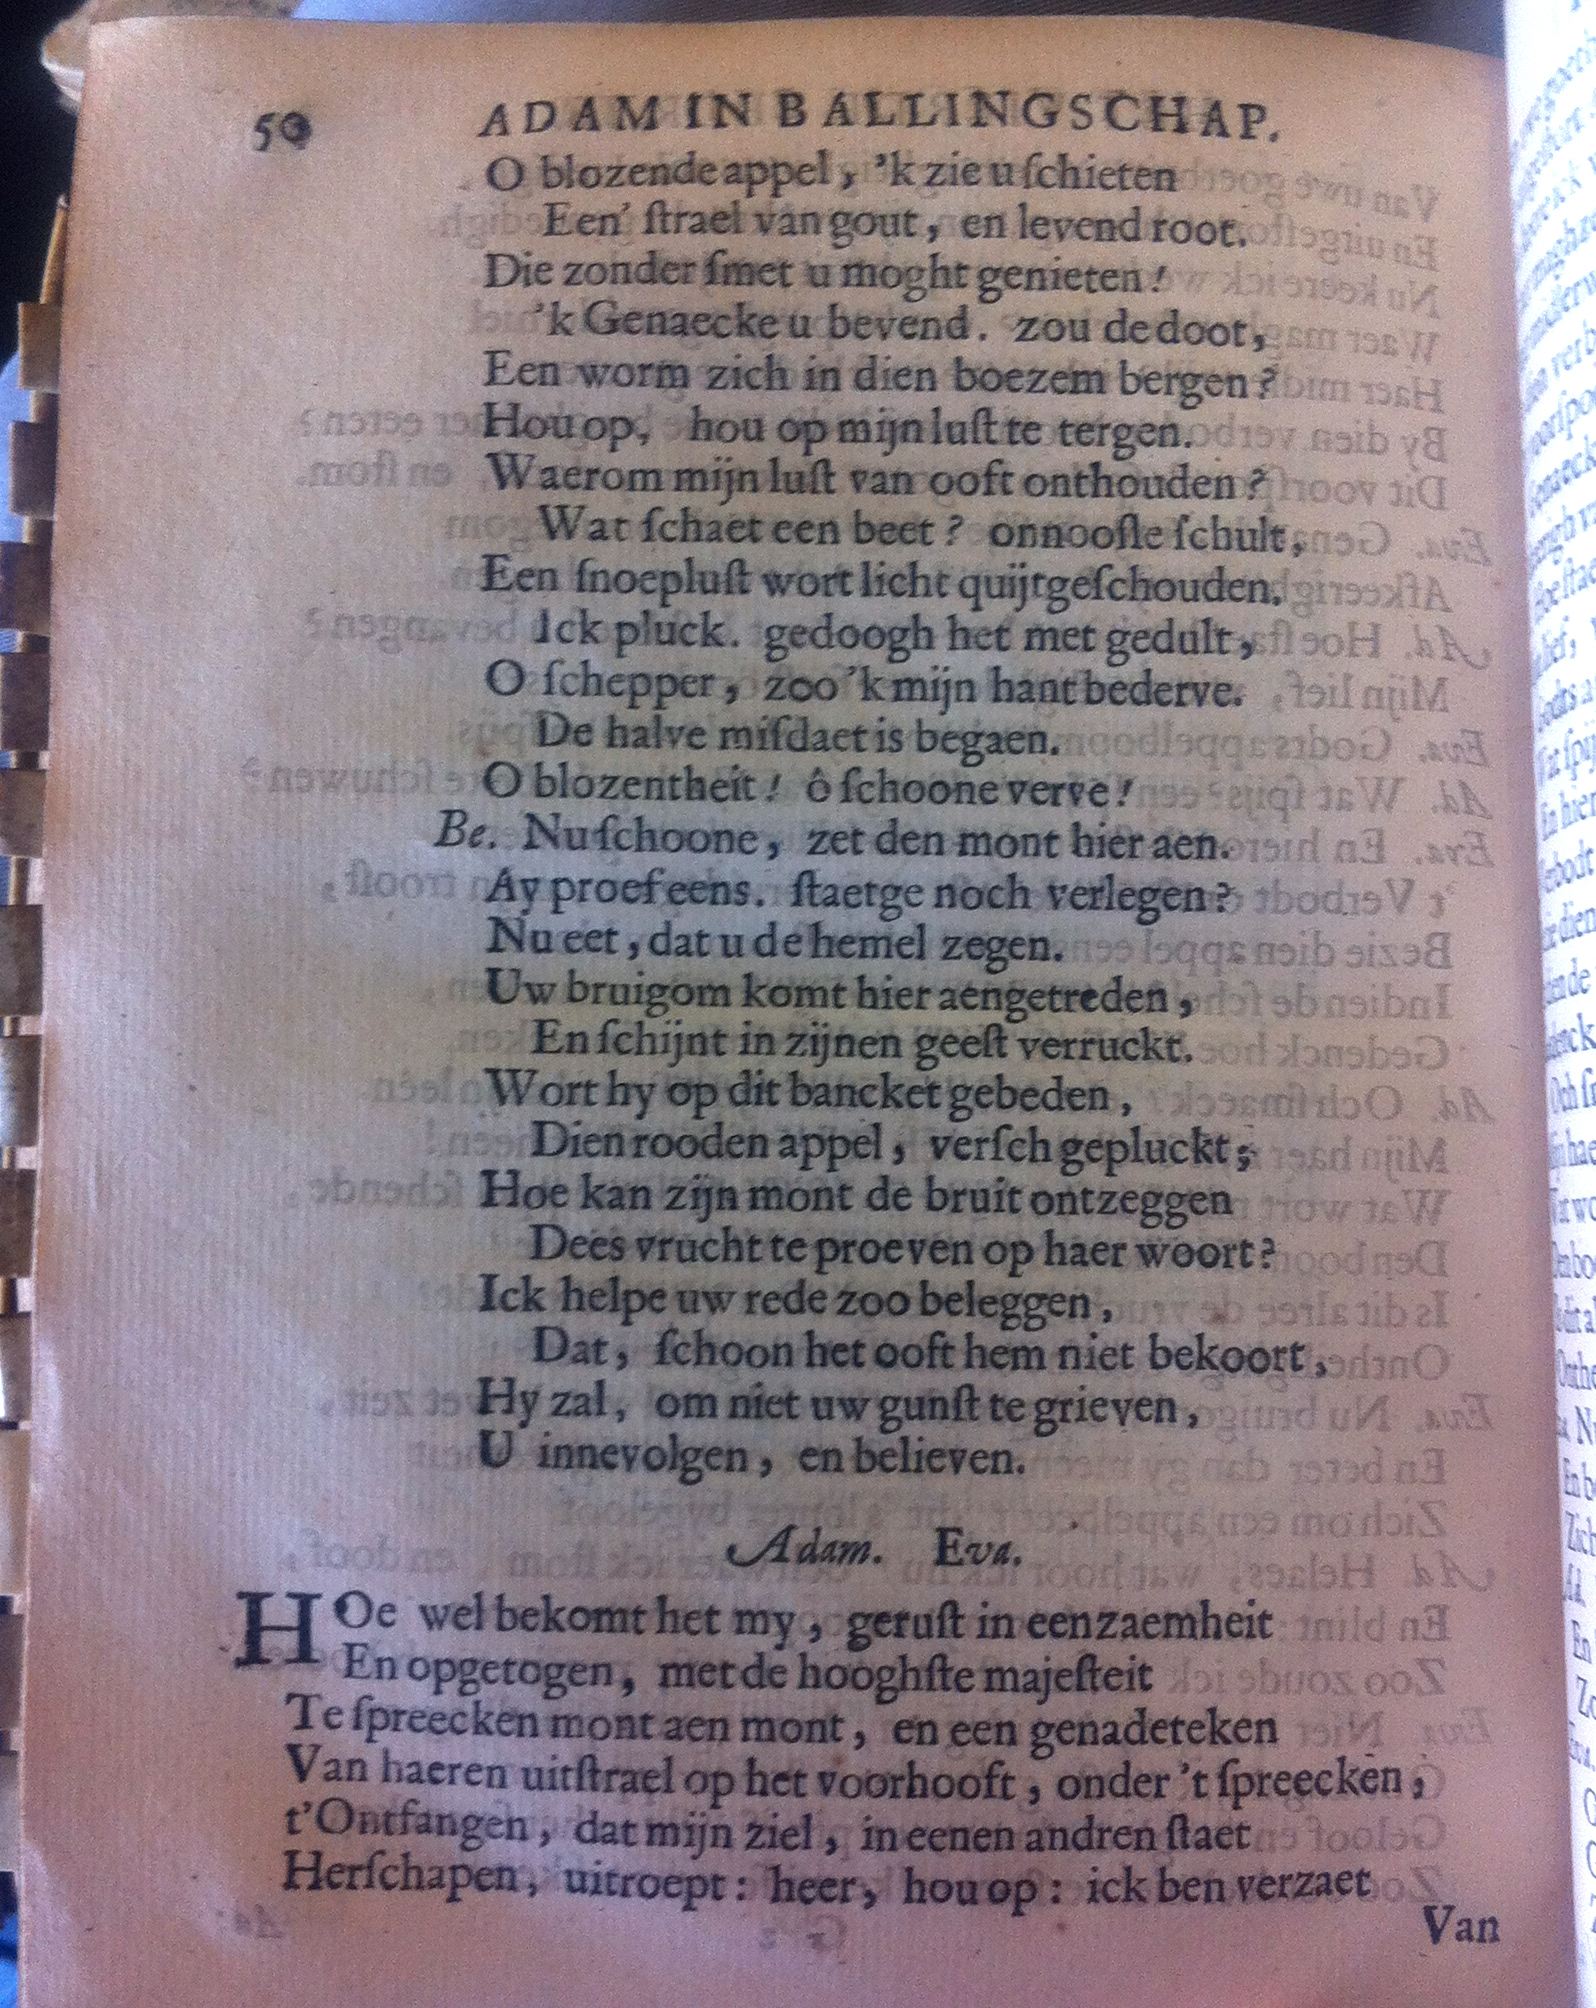 50 ADAM IN BALLINGSCHAP.
O blozende appel, 'k zie u ſchieten
Een' ſtrael van gout, en levend root.
Die zonder ſmet u moght genieten!
'k Genaecke u bevend. zou de doot,
Een worm zich in dien boezem bergen?
Hou op, hou op mijn luſt te tergen.
Waerom mijn luſt van ooft onthouden?
Wat ſchaet een beet? onnooſle ſchult,
Een ſnoepluſt wort licht quijtgeſchouden.
Ick pluck. gedoogh het met gedult,
O ſchepper, zoo 'k mijn hant bederve.
De halve miſdaet is begaen.
O blozentheit! ô ſchoone verve!
Be. Nu ſchoone, zet den mont hier aen.
Ay proef eens. ſtaetge noch verlegen?
Nu eet, dat u de hemel zegen.
Uw bruigom komt hier aengetreden,
En ſchijnt in zijnen geeſt verruckt.
Wort hy op dit bancket gebeden,
Dien rooden appel, verſch gepluckt;
Hoe kan zijn mont de bruit ontzeggen
Dees vrucht te proeven op haer woort?
Ick helpe uw rede zoo beleggen,
Dat, ſchoon het ooft hem niet bekoort,
Hy zal, om niet uw gunſt te grieven,
U innevolgen, en believen.
Adam. Eva.
HOe wel bekomt het my, geruſt in eenzaemheit
En opgetogen, met de hooghſte majeſteit
Te ſpreecken mont aen mont, en een genadeteken
Van haeren uitſtrael op het voorhooft, onder 't ſpreecken,
t'Ontfangen, dat mijn ziel, in eenen andren ſtaet
Herſchapen, uitroept: heer, hou op: ick ben verzaet
Van